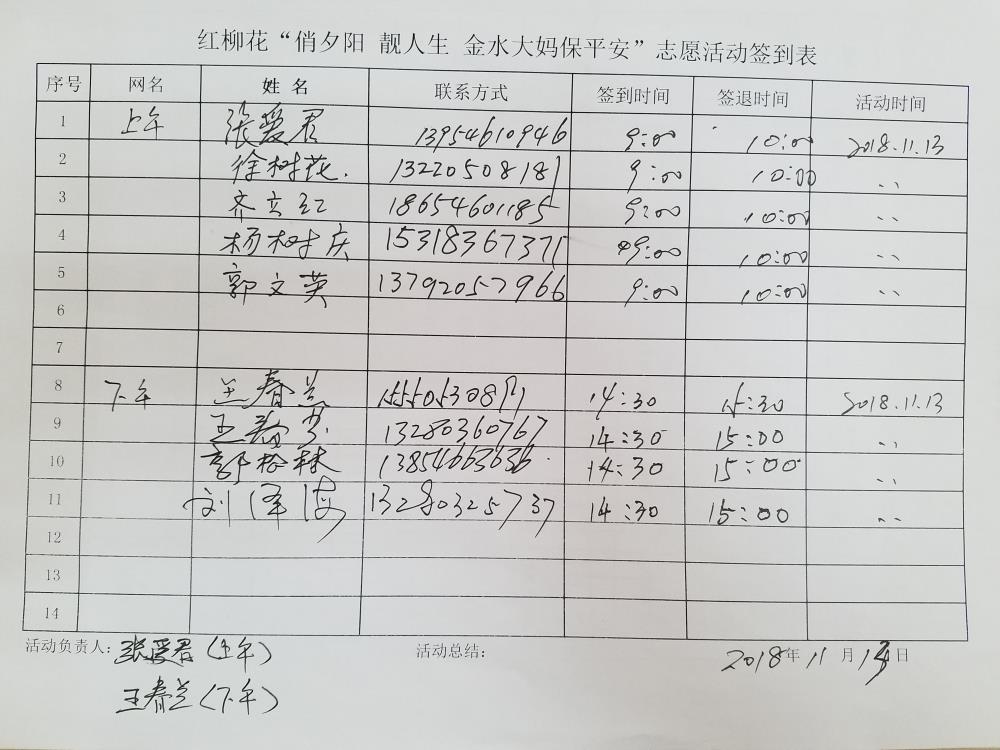 红柳花“俏夕阳 靓人生 金水大妈保平安”志愿活动签到表
序号 网名 姓名 联系方式 签到时间 签退时间 活动时间
1 上午 张爱君 13954610946 9:00 10:00 2018.11.13
2 徐树花. 13220508181 9:00 10:00 、、
3 齐立红 18654601185 9:00 10:00 、、
4 杨树庆 15318367371 9:00 10:00 、、
5 郭文英 13792057966 9:00 10:00 、、
6
7
8 下午 王春兰 14:30 15:30 2018.11.13
9 王 13280360767 14:30 15:00 、、
10 郭松林 13854663636 14:30 15:00 、、
11 刘泽海 13280325737 14:30 15:00 、、
12
13
14
活动负责人: 张爱君(上午) 活动总结: 2018年11月13日
王春兰(下午)